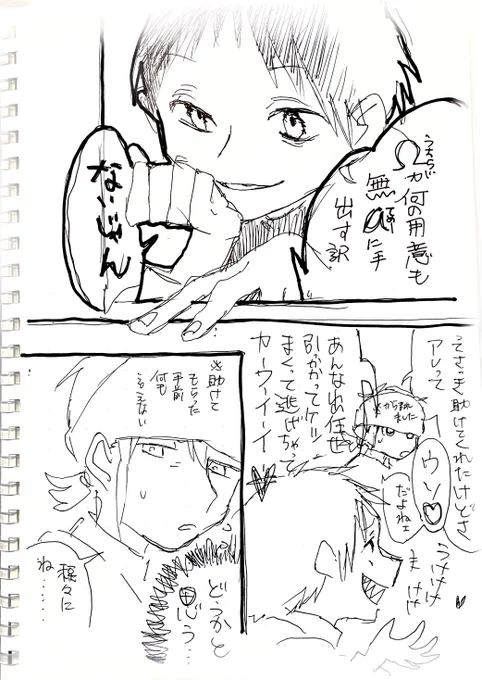 うちらが
Ωが何の用意も
無しに手
出す訳
ないじゃん
さっき助けてくれたけどさ
アレって
からまれ
ました
ウソ♡
だよねェ
あんなわ任せ
引っかかってケリッ
まくって逃げちゃって
カーワーイーイー
うけけけ
け け
※助けて
もらった
手前
何も
言えない
どうかと
思う…
様々に
ね……